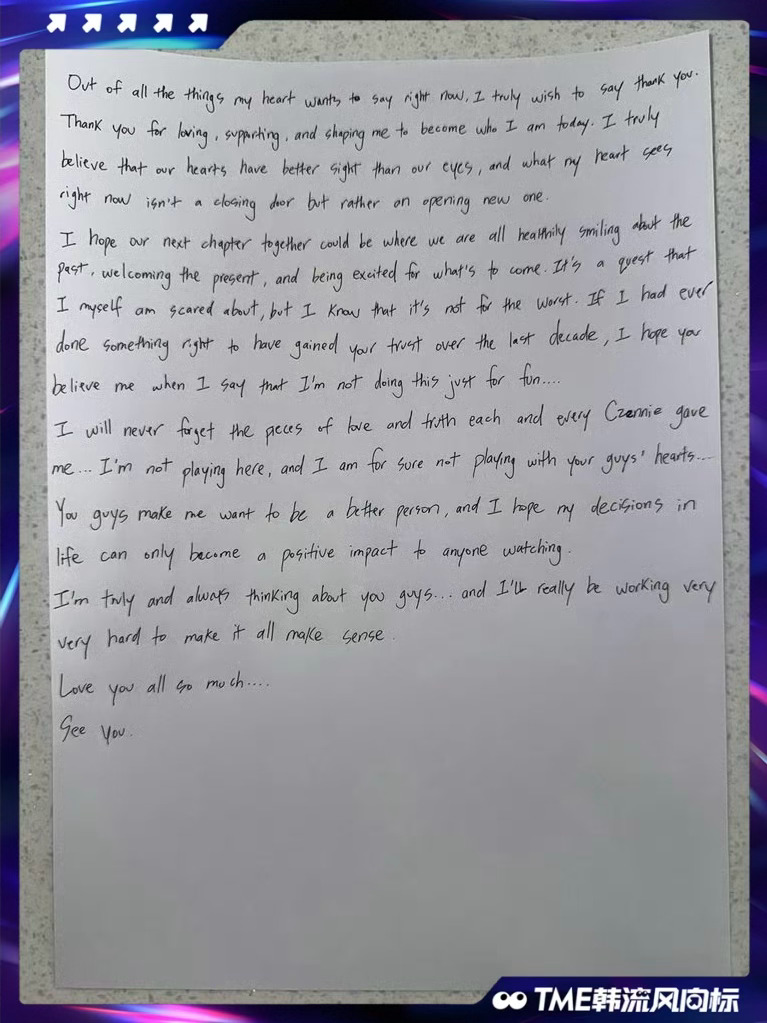 Out of all the things my heart wants to say right now, I truly wish to say thank you.
Thank you for loving, supporting, and shaping me to become who I am today. I truly
believe that our hearts have better sight than our eyes, and what my heart sees
right now isn't a closing door but rather an opening new one.
I hope our next chapter together could be where we are all healthily smiling about the
past, welcoming the present, and being excited for what's to come. It's a quest that
I myself am scared about, but I know that it's not for the worst. If I had ever
done something right to have gained your trust over the last decade, I hope you
believe me when I say that I'm not doing this just for fun....
I will never forget the pieces of love and truth each and every Czennie gave
me... I'm not playing here, and I am for sure not playing with your guys' hearts...
You guys make me want to be a better person, and I hope my decisions in
life can only become a positive impact to anyone watching.
I'm truly and always thinking about you guys... and I'll really be working very
very hard to make it all make sense.
Love you all so much....
See you.
TME韩流风向标